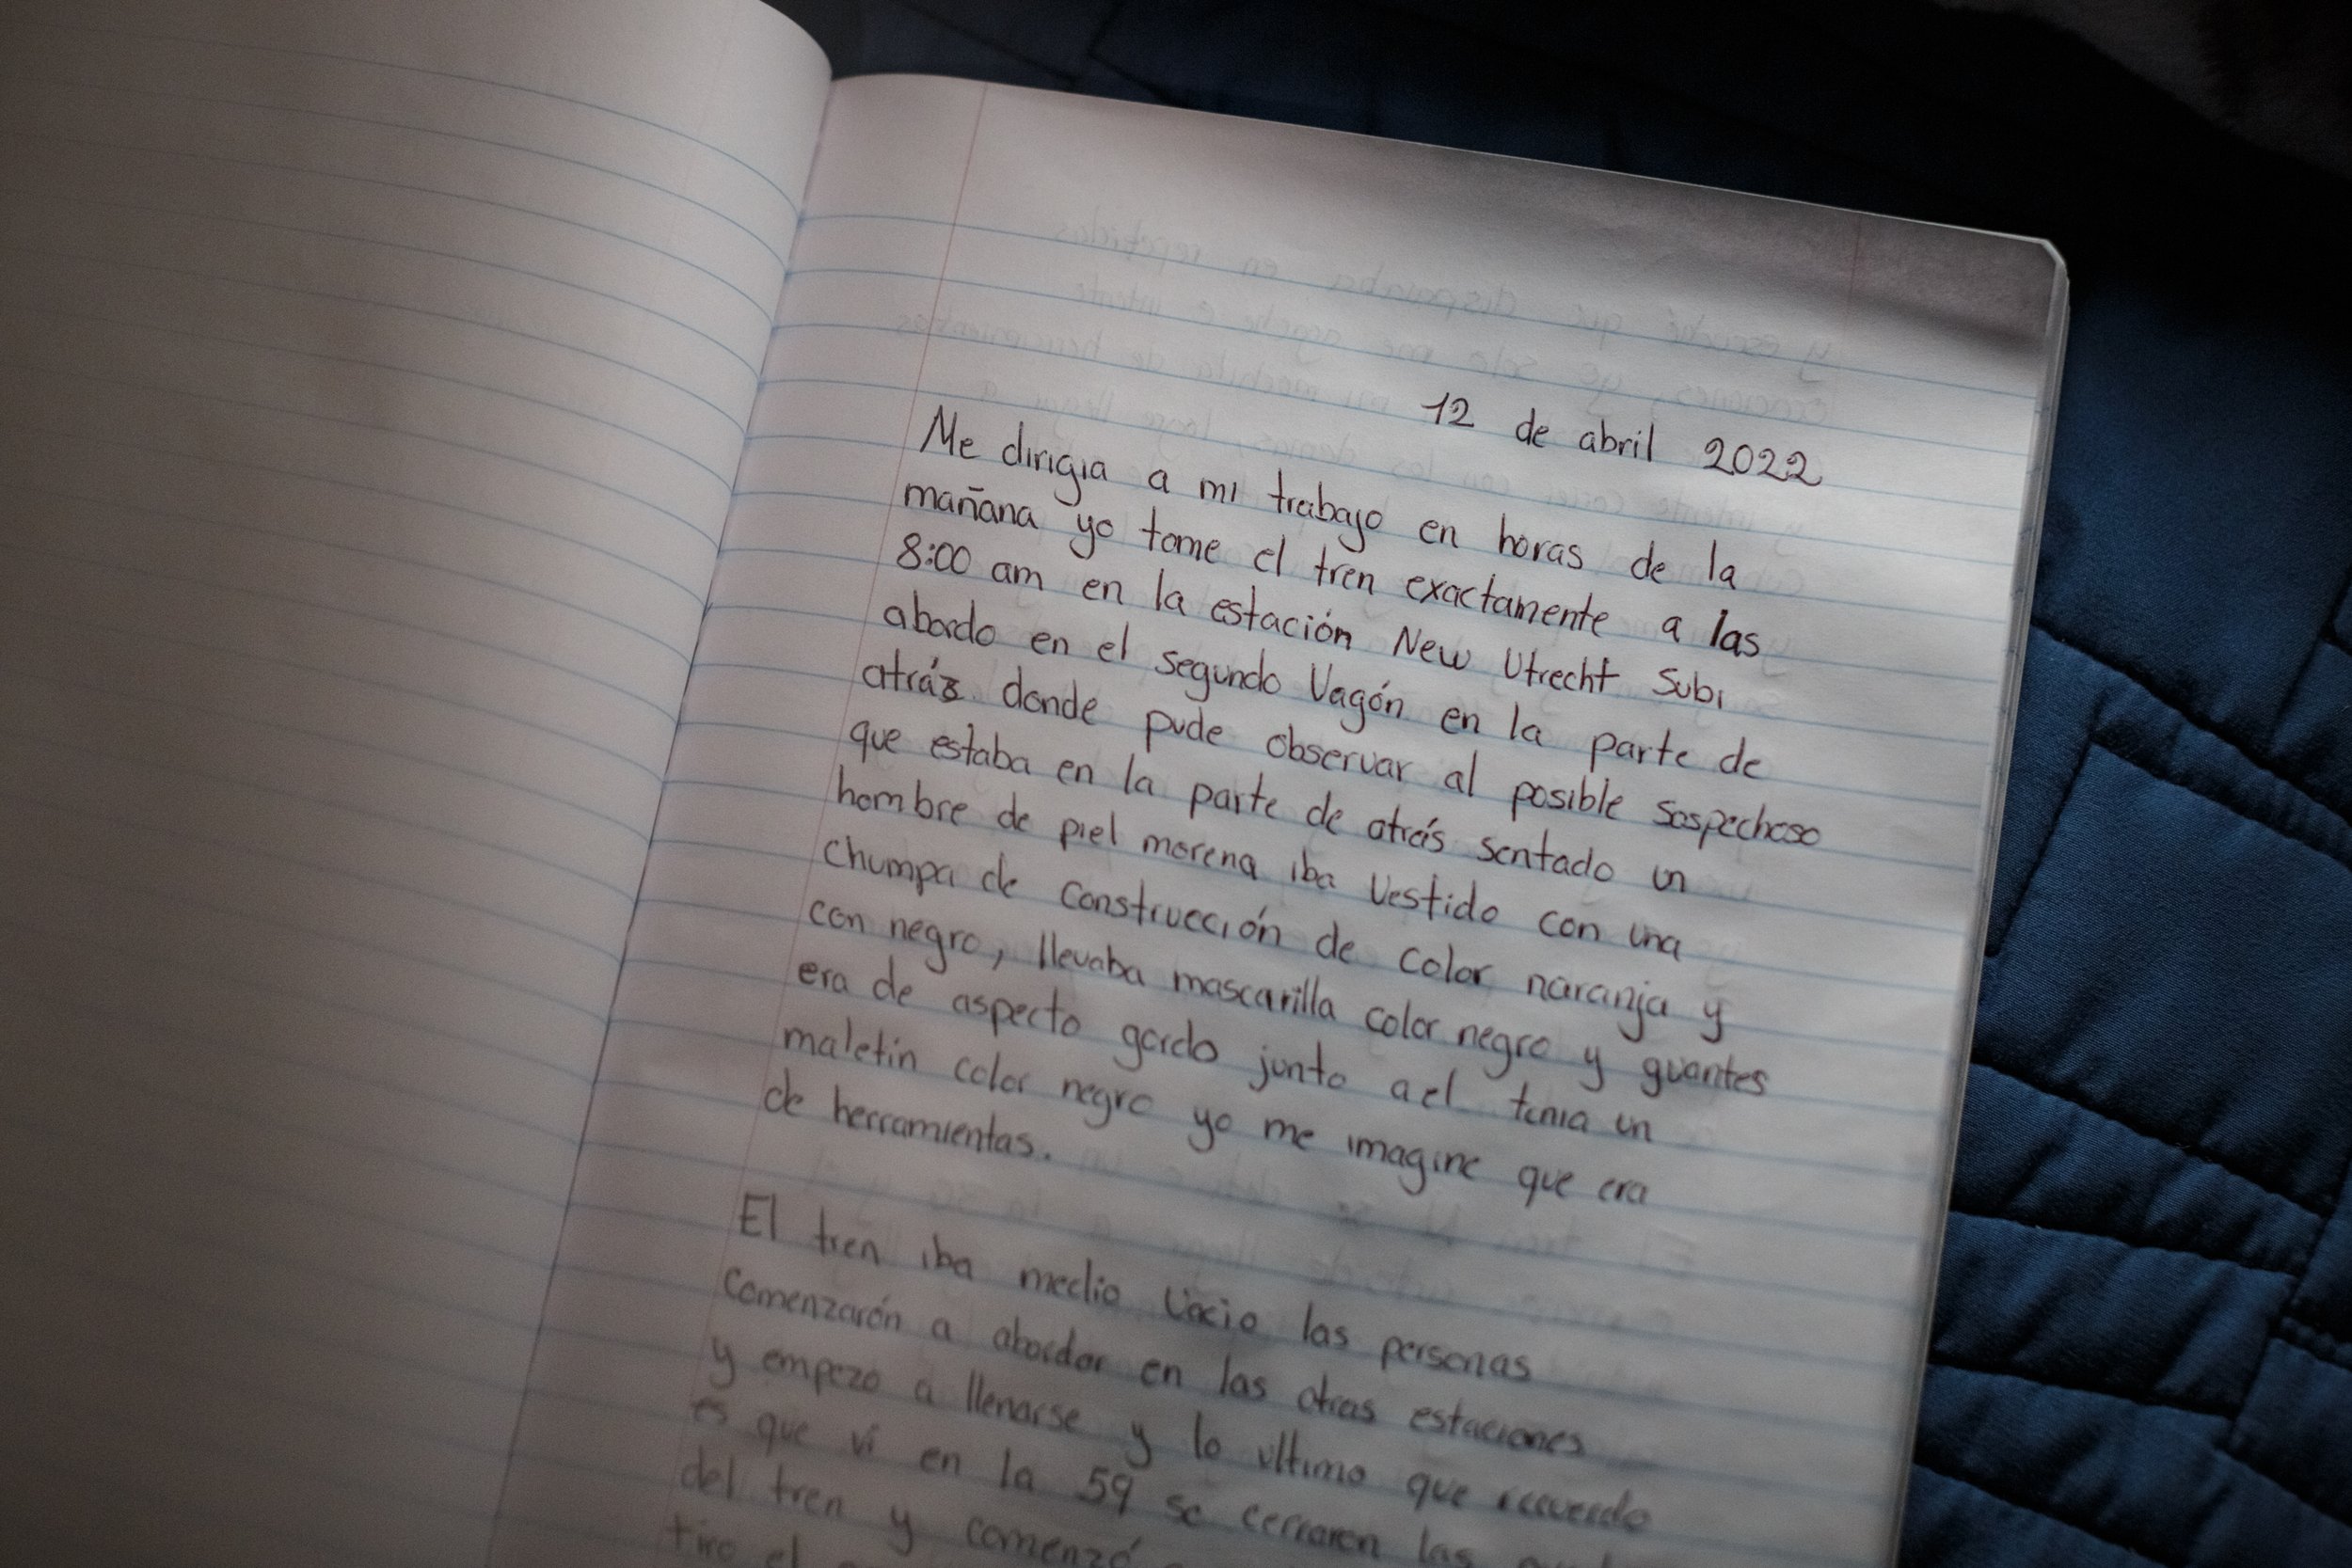 12 de abril 2022
Me dirigia a mi trabajo en horas de la
mañana yo tome el tren exactamente a las
8:00 am en la estación New Utrecht Subi
abordo en el segundo Vagón en la parte de
atráz donde pude observar al posible sospechoso
que estaba en la parte de atrás sentado un
hombre de piel morena iba vestido con una
chumpa de construcción de color naranja y
con negro, llevaba mascarilla color negro y guantes
era de aspecto gordo junto a el tenia un
maletin color negro yo me imagine que era
de herramientas.
El tren iba medio vacio las personas
comenzarón a abordar en las otras estaciones
y empezo a llenarse y lo ultimo que recuerdo
es que vi en la 59 se cerraron las
del tren y comenzó
tiro el